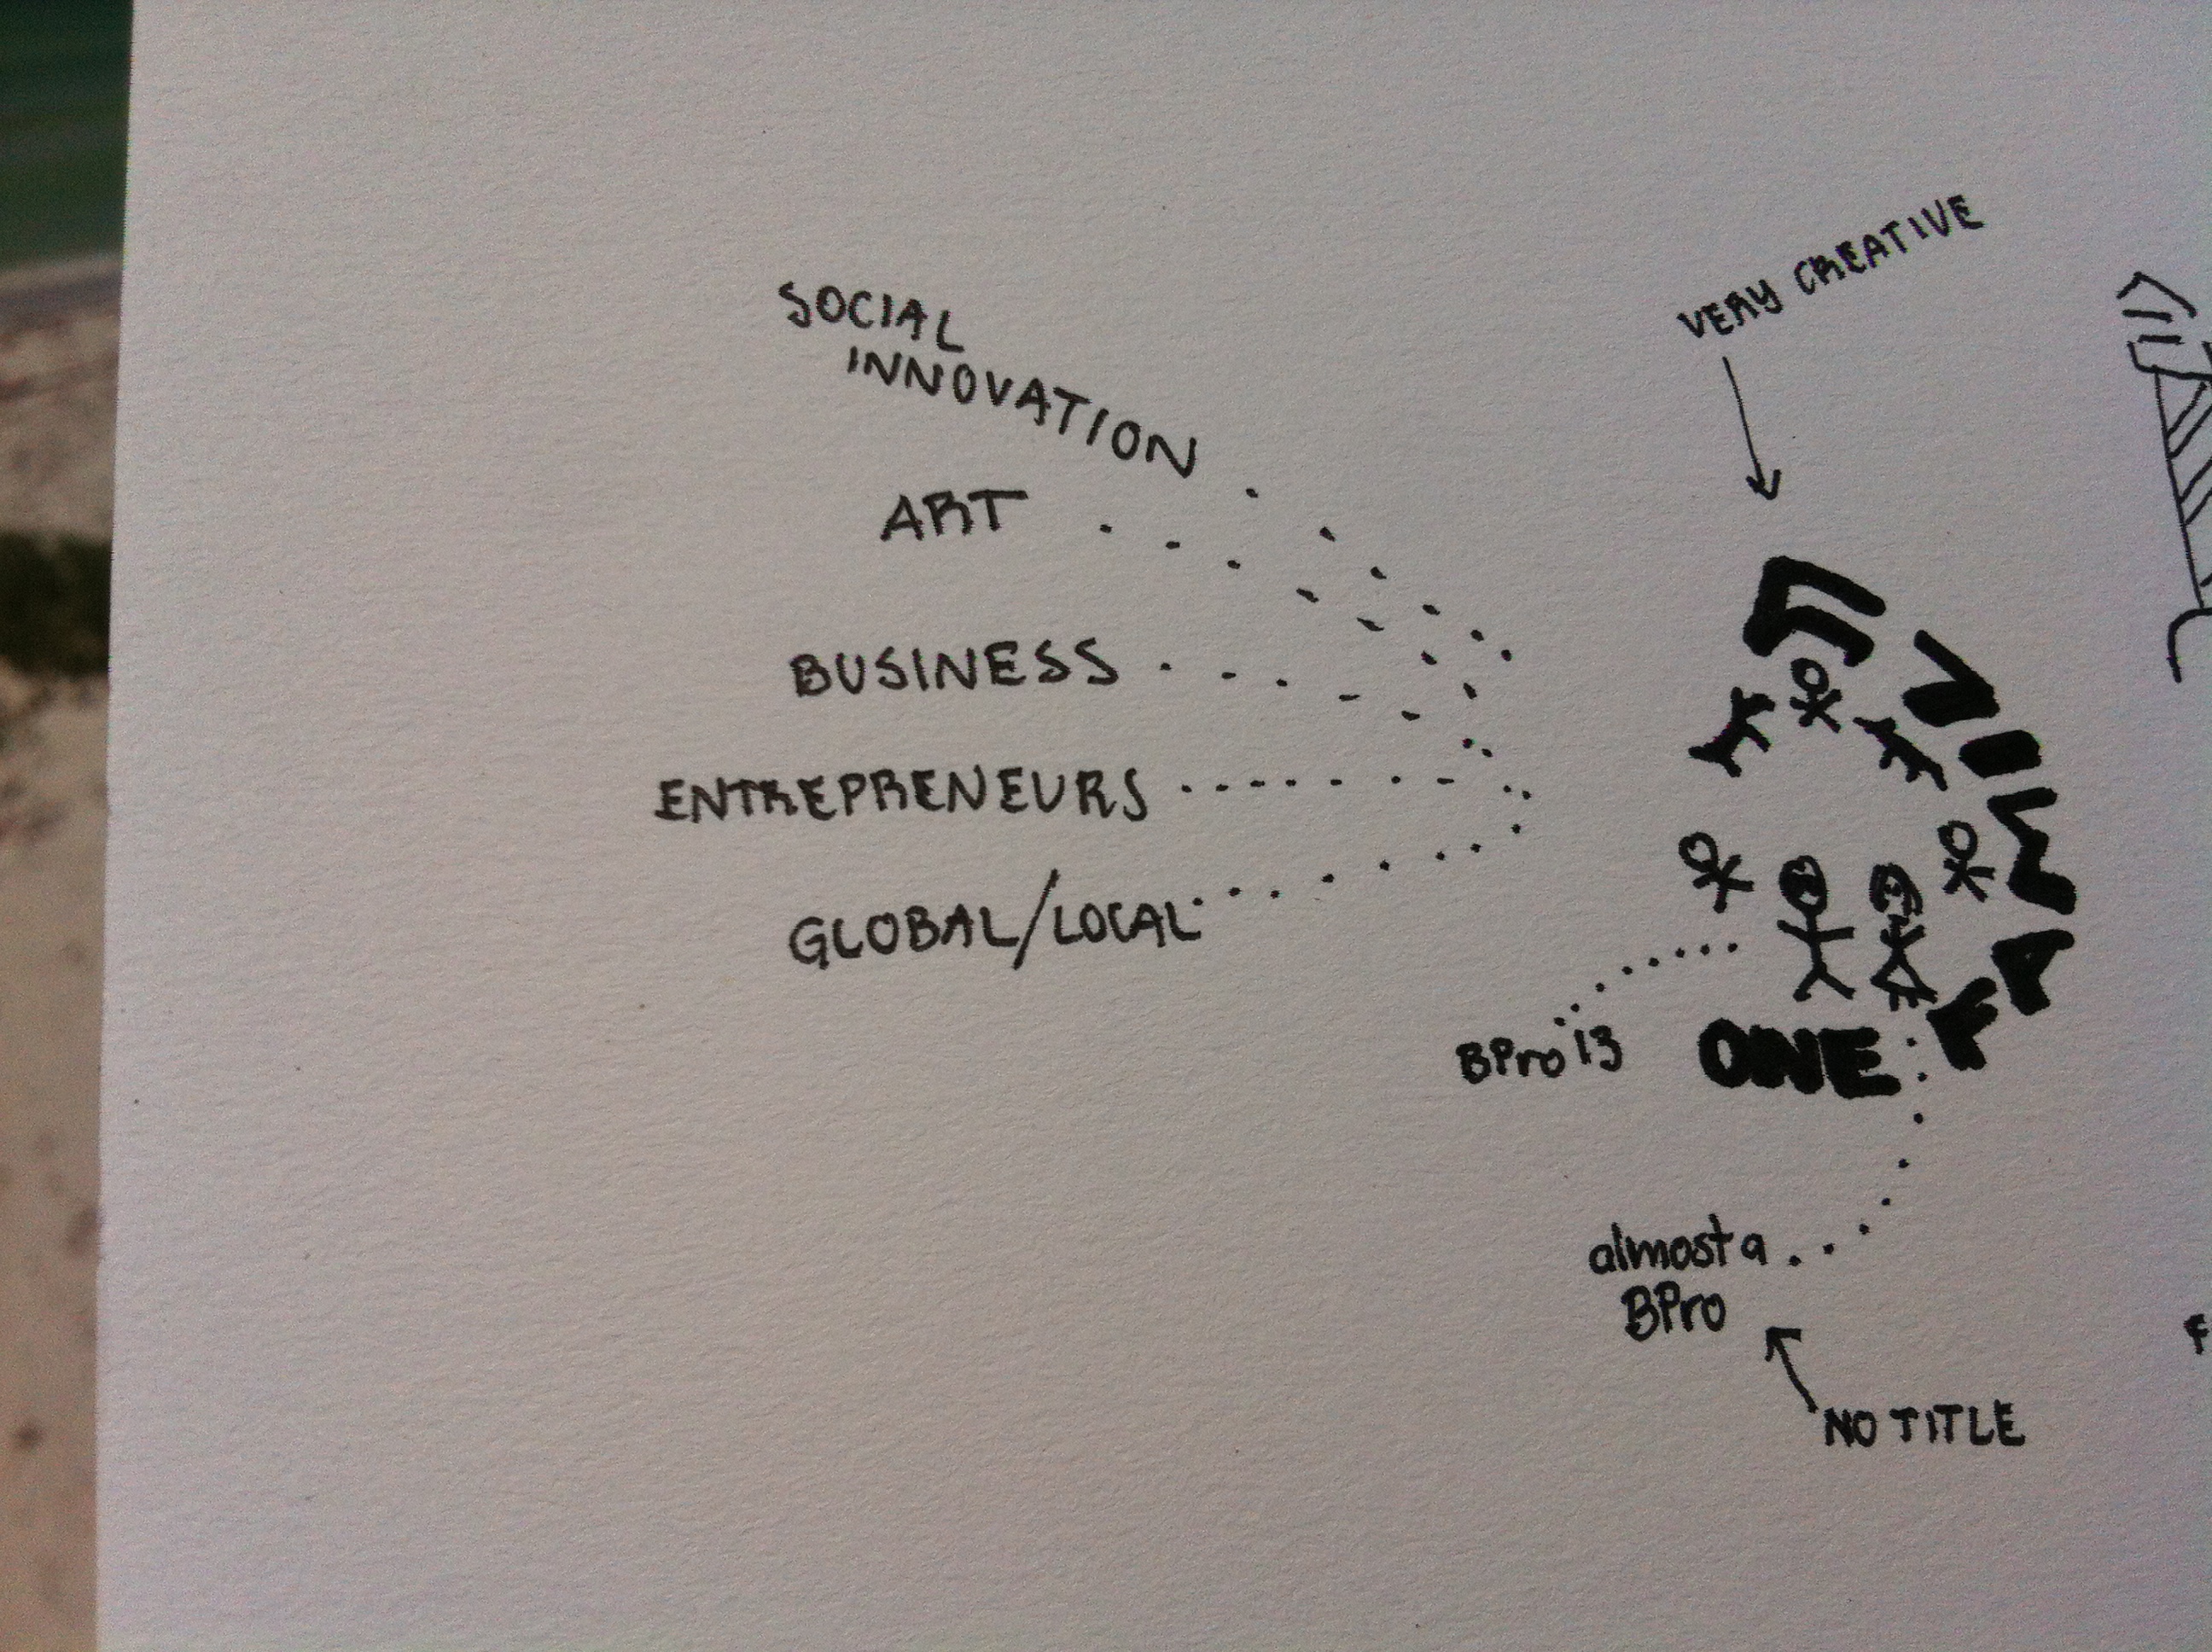 SOCIAL
INNOVATION
ART
BUSINESS
ENTREPRENEURS
GLOBAL/LOCAL
VERY CREATIVE
ONE FAMILY
BPro'13
almost a
BPro
NO TITLE